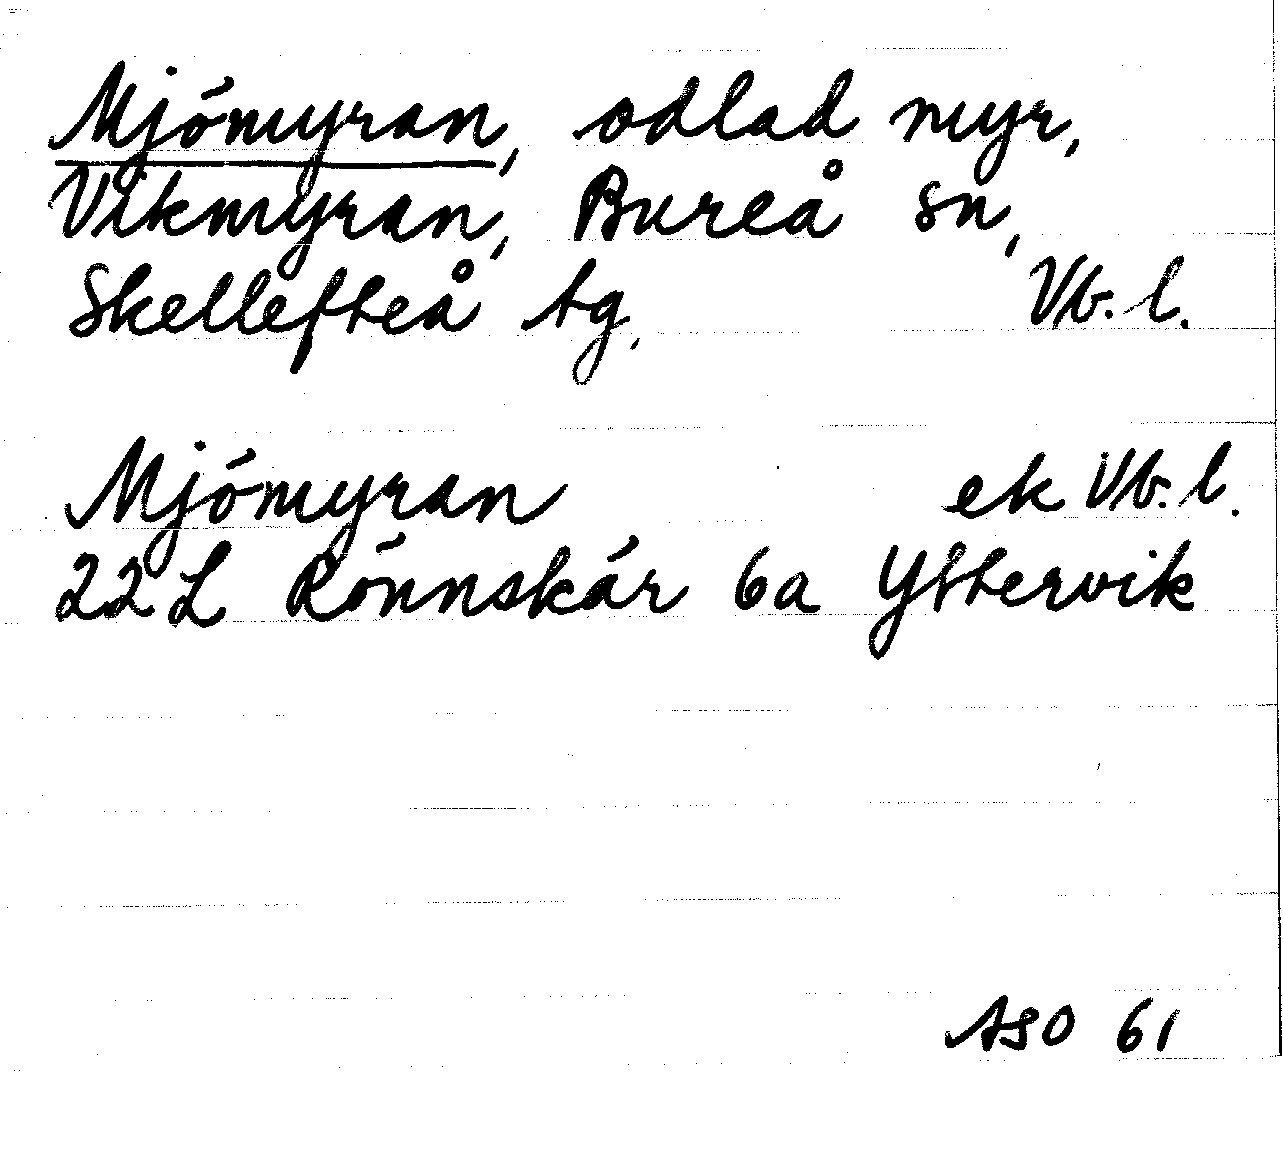 Mjömyran, odlad myr,
Vikmyran, Bureå sn,
Skellefteå tg, Vb. l.
Mjömyran ek Vb. l.
22 L Rönnskär 6a Yttervik
ASO 61